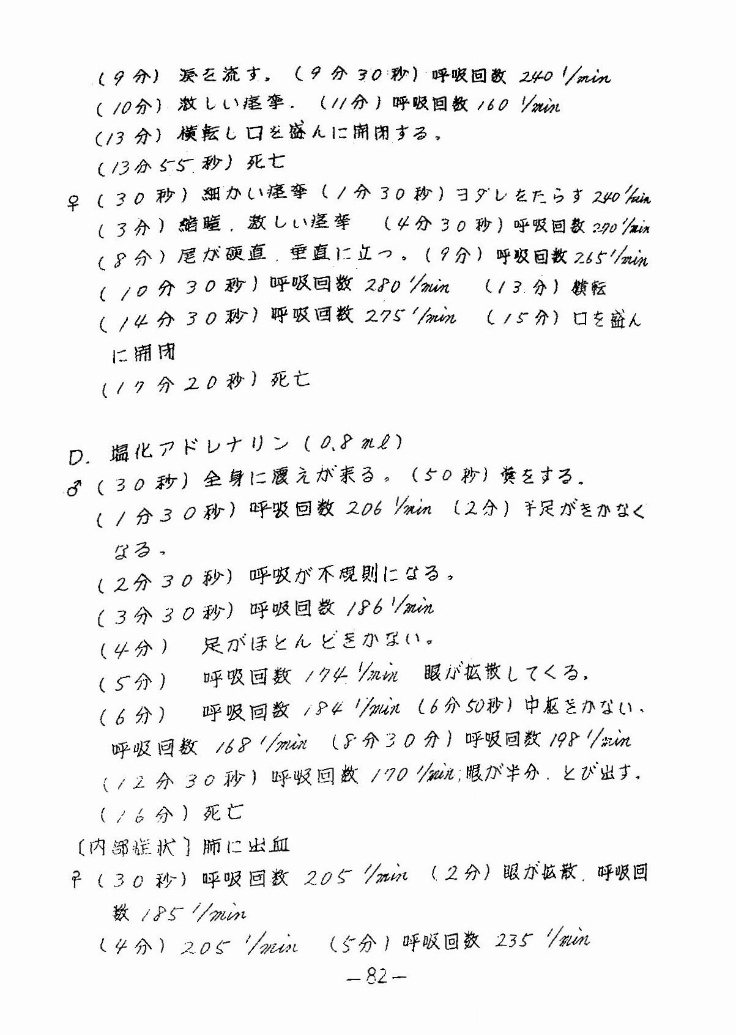 (9分) 涙を流す。(9分30秒)呼吸回数 240 1/min
(10分) 激しい痙攣. (11分)呼吸回数160 1/min
(13分) 横転し口を盛んに開閉する。
(13分55秒)死亡
♀(30秒)細かい痙攣(1分30秒)ヨダレをたらす240 1/min
(3分)縮瞳. 激しい痙攣 (4分30秒)呼吸回数290 1/min
(8分)尾が硬直. 垂直に立つ。(9分)呼吸回数265 1/min
(10分30秒)呼吸回数280 1/min (13分)横転
(14分30秒)呼吸回数275 1/min (15分)口を盛ん
に開閉
(17分20秒)死亡
D. 塩化アドレナリン(0.8ml)
♂(30秒)全身に震えが来る。(50秒)糞をする.
(1分30秒)呼吸回数206 1/min (2分)手足がきかなく
なる。
(2分30秒)呼吸が不規則になる。
(3分30秒)呼吸回数186 1/min
(4分) 足がほとんどきかない。
(5分) 呼吸回数174 1/min 眼が拡散してくる.
(6分) 呼吸回数184 1/min (6分50秒)中枢きかない、
呼吸回数 168 1/min (8分30分)呼吸回数198 1/min
(12分30秒)呼吸回数170 1/min;眼が半分. とび出す.
(16分)死亡
〔内部症状〕肺に出血
♀(30秒)呼吸回数 205 1/min (2分)眼が拡散. 呼吸回
数185 1/min
(4分)205 1/min (5分)呼吸回数 235 1/min
－82－